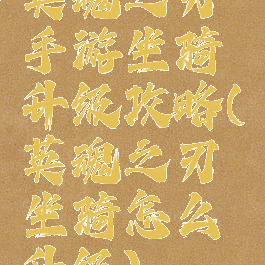 英魂之刃
手游坐骑
升级攻略(
英魂之刃
坐骑怎么
升级)